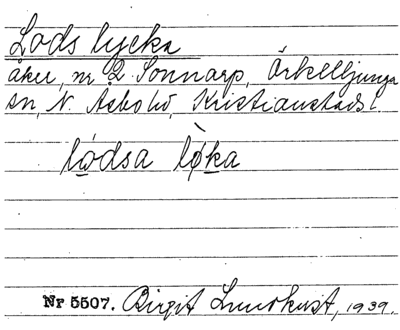 Lods lycka
åker, nr 2 Sonnarp, Örkelljunga
sn, N. Åsbo hd, Kristianstads l.
lódsa lø̀ka
Nr 5507. Birgit Lundkvist, 1939.